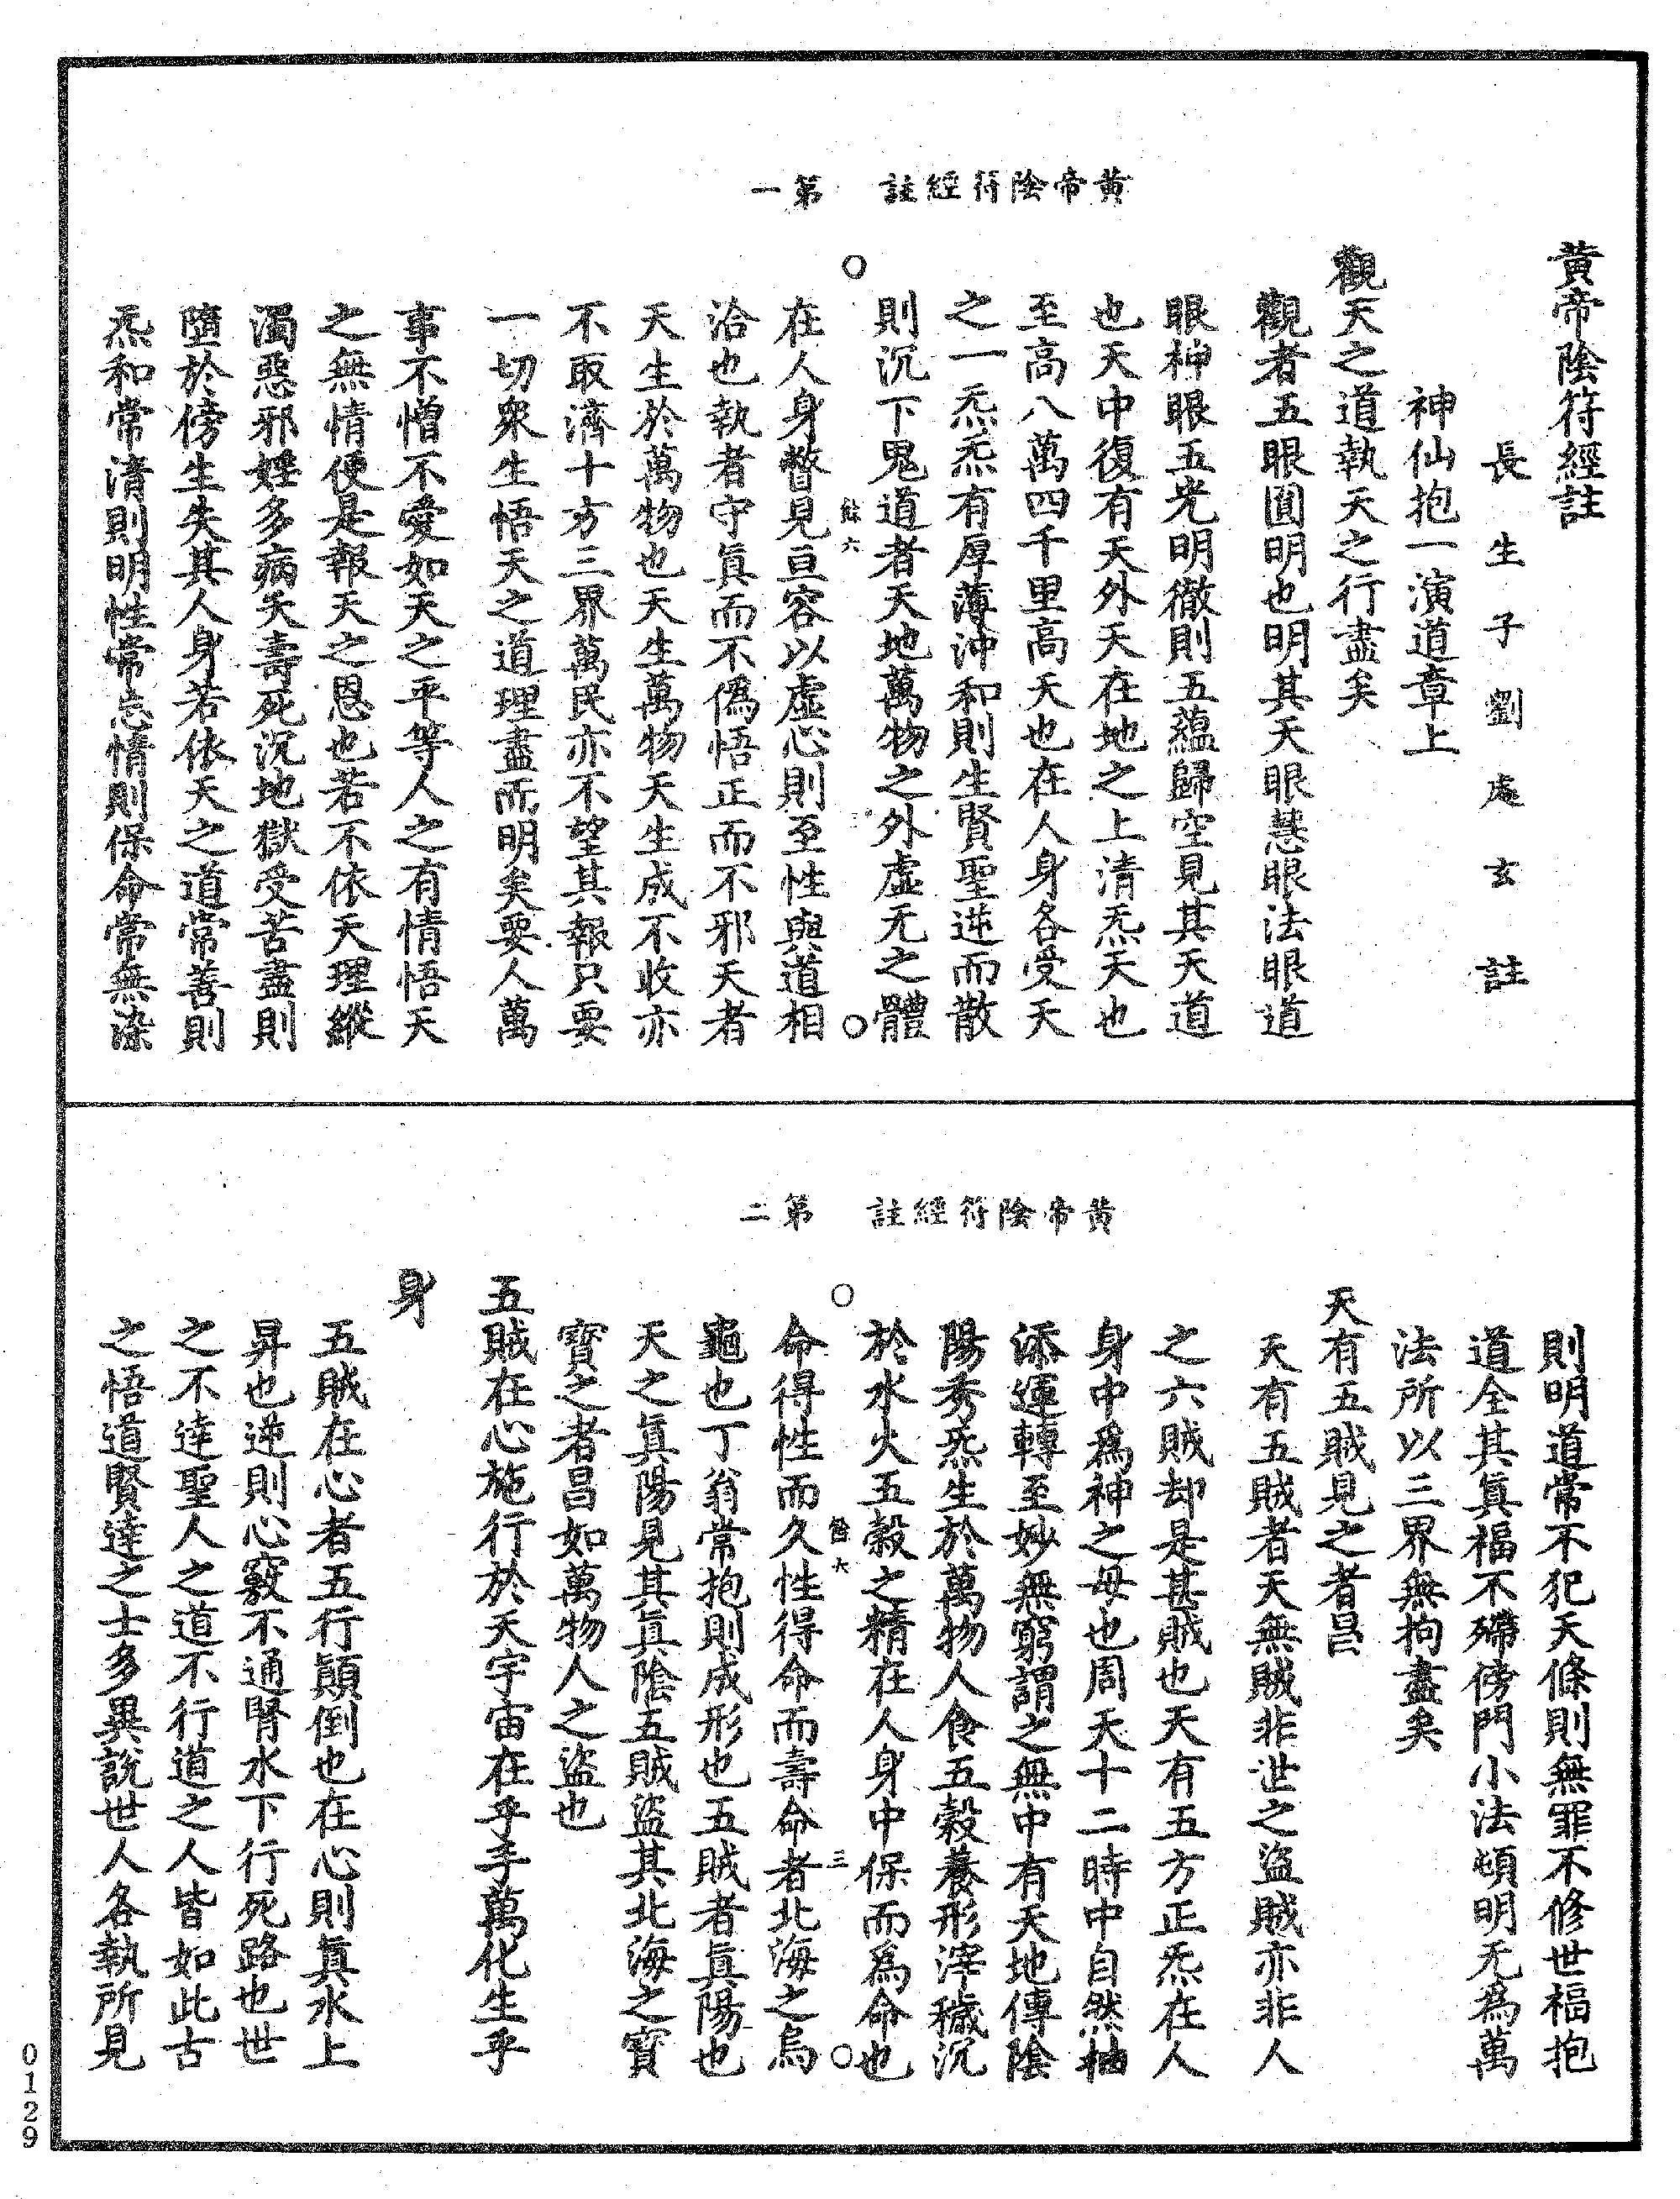 黃帝陰符經註　第一
黃帝陰符經註
長生子劉處玄註
神仙抱一演道章上
觀天之道執天之行盡矣
觀者五眼圓明也明其天眼慧眼法眼道
眼神眼五光明徹則五蘊歸空見其天道
也天中復有天外天在地之上清炁天也
至高八萬四千里高天也在人身各受天
之一炁炁有厚薄沖和則生賢聖逆而散
則沉下鬼道者天地萬物之外虛无之體
在人身瞥見亘容以虛心則至性與道相
洽也執者守眞而不僞悟正而不邪天者
天生於萬物也天生萬物天生成不收亦
不取濟十方三界萬民亦不望其報只要
一切衆生悟天之道理盡而明矣要人萬
事不憎不愛如天之平等人之有情悟天
之無情便是報天之恩也若不依天理縱
濁惡邪婬多病夭壽死沉地獄受苦盡則
墮於傍生失其人身若依天之道常善則
炁和常清則明性常忘情則保命常無染
黃帝陰符經註　第二
則明道常不犯天條則無罪不修世福抱
道全其眞福不㱯傍門小法頓明无爲萬
法所以三界無拘盡矣
天有五賊見之者昌
天有五賊者天無賊非世之盜賊亦非人
之六賊却是甚賊也天有五方正炁在人
身中爲神之母也周天十二時中自然抽
添運轉至妙無窮謂之無中有天地傳陰
陽秀炁生於萬物人食五穀養形滓穢沉
於水火五穀之精在人身中保而爲命也
命得性而久性得命而壽命者北海之烏
龜也丁翁常抱則成形也五賊者眞陽也
天之眞陽見其眞陰五賊盜其北海之寶
寶之者昌如萬物人之盜也
五賊在心施行於天宇宙在乎手萬化生乎
身
五賊在心者五行顛倒也在心則眞水上
昇也逆則心竅不通腎水下行死路也世
之不達聖人之道不行道之人皆如此古
之悟道賢達之士多異說世人各執所見
0129